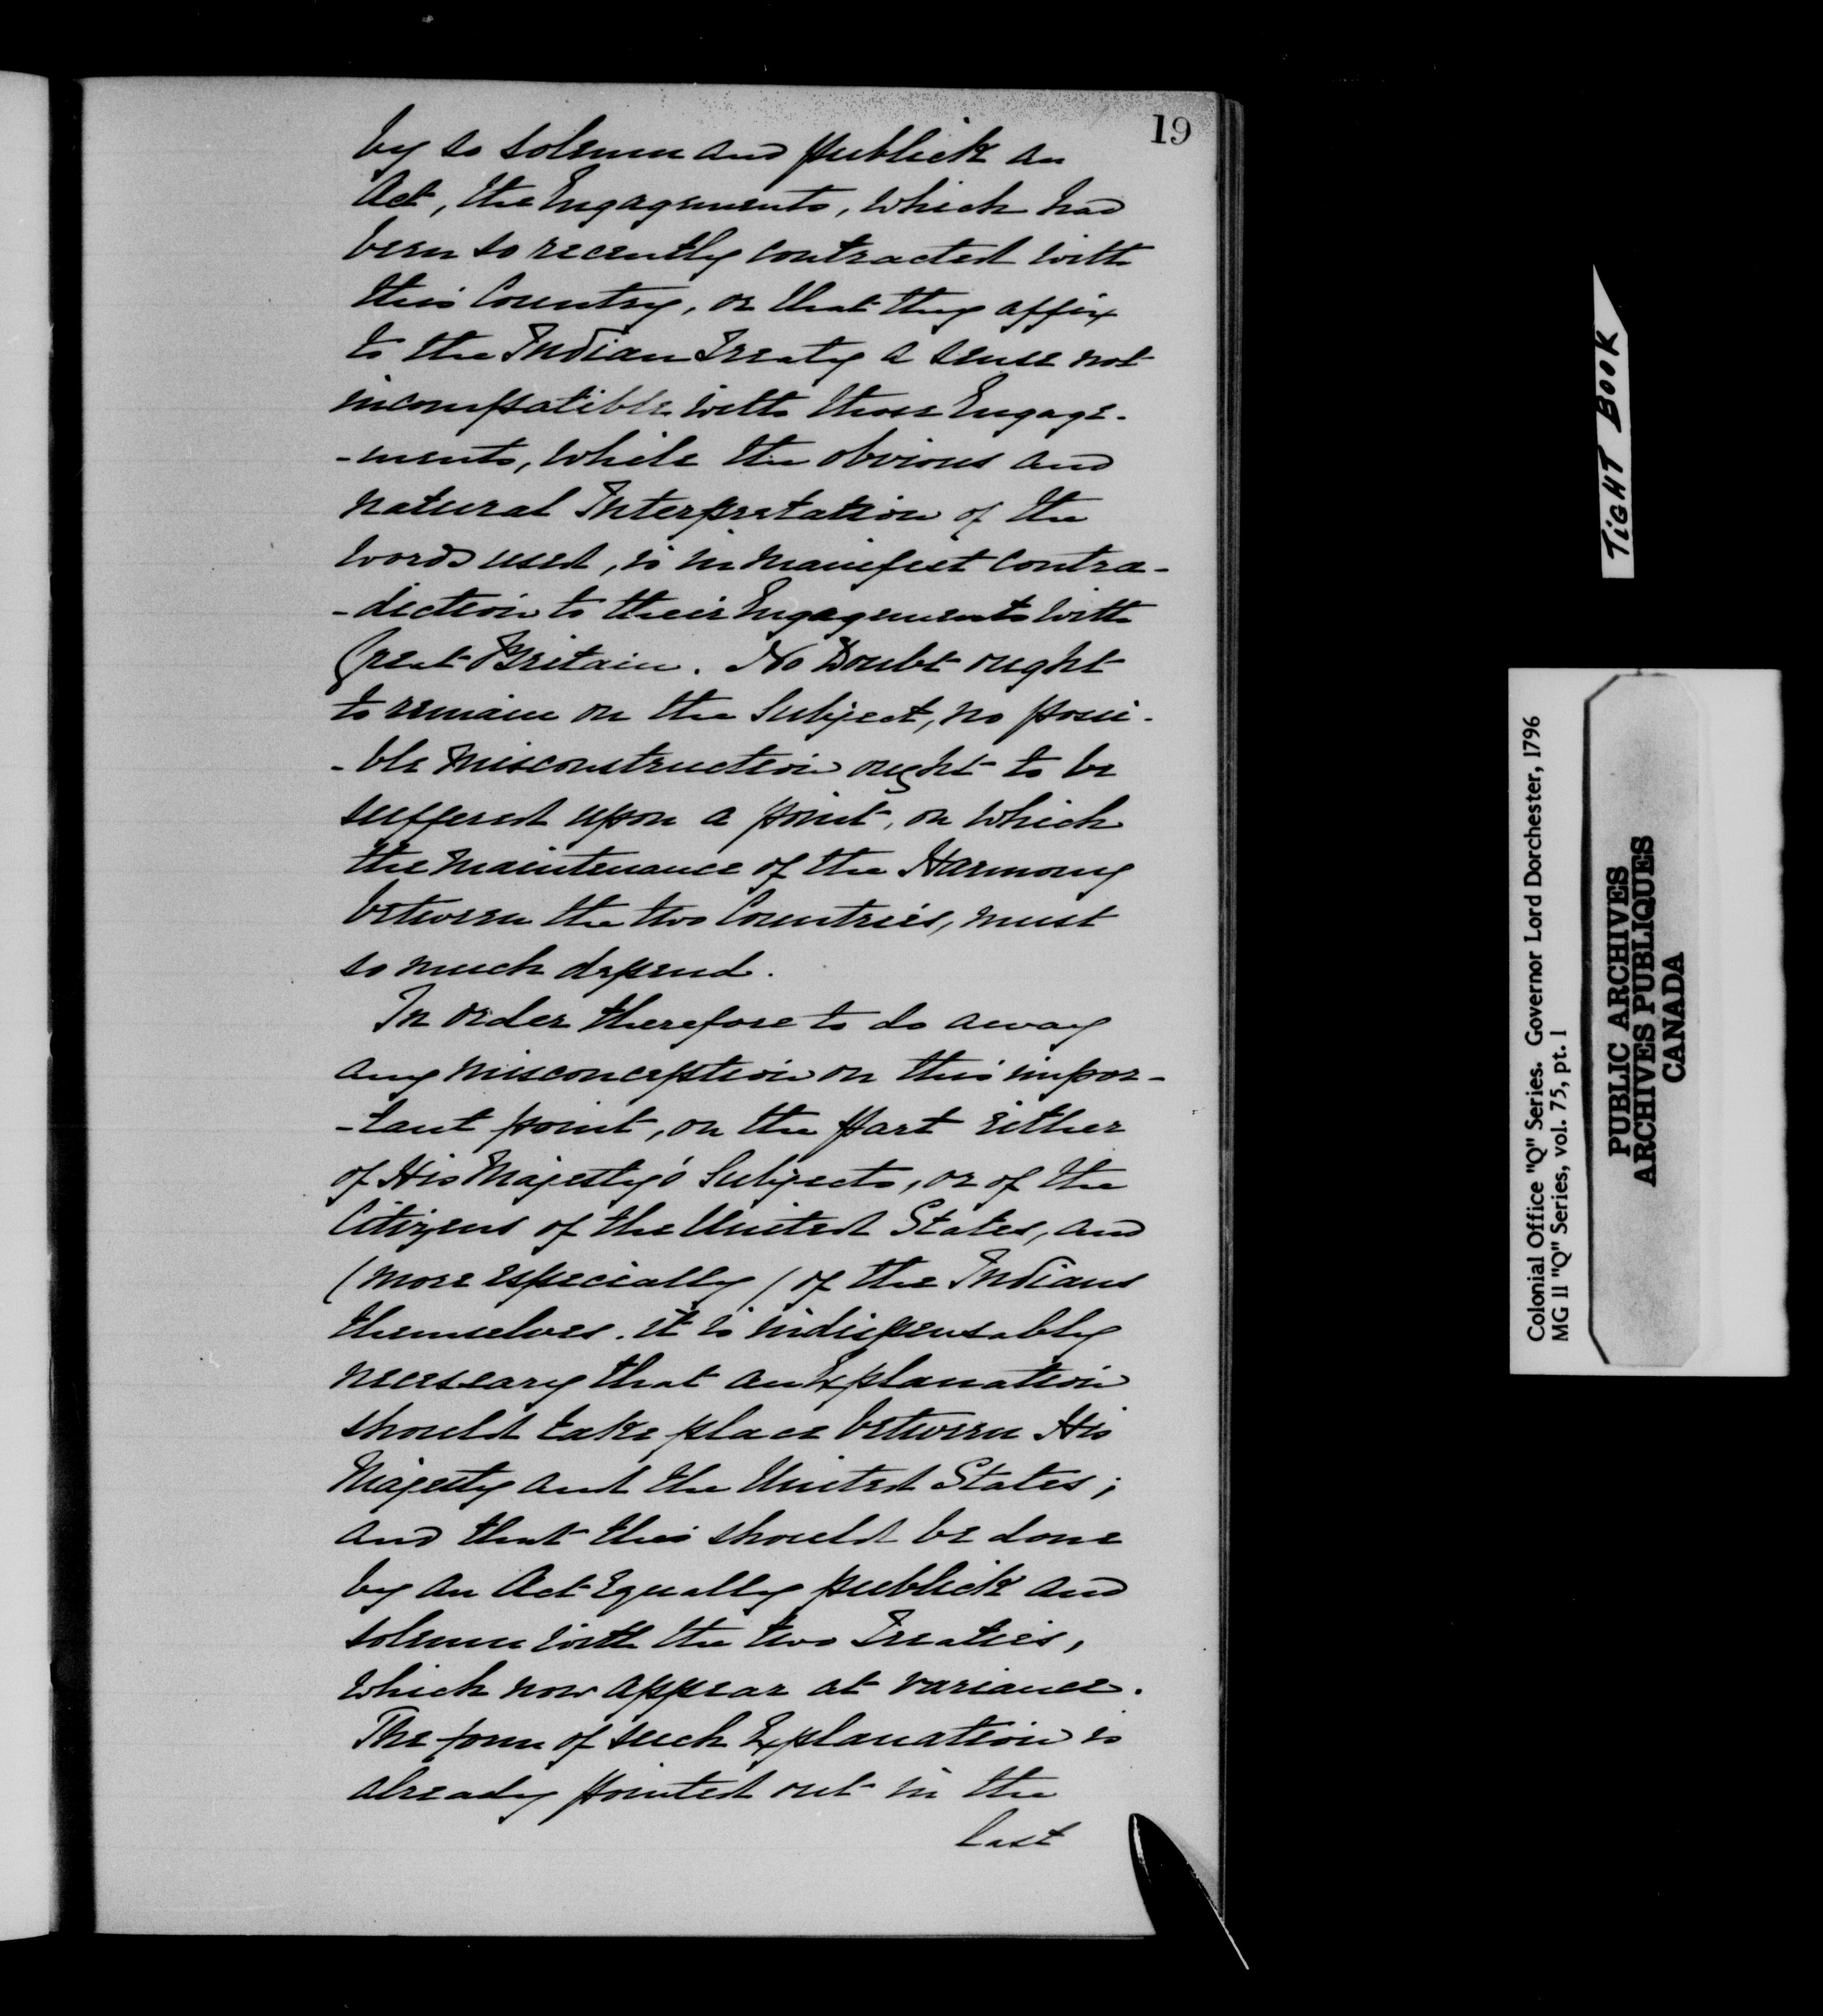 19
by so solemn and publick an
Act, the Engagements, which had
been so recently contracted with
this Country, or that they affix
to the Indian Treaty a sense not
incompatible with those Engage-
-ments, while the obvious and
natural Interpretation of the
words used, is in manifest contra-
-diction to their Engagements with
Great Britain. No Doubt ought
to remain on the Subject, no possi-
-ble misconstruction ought to be
suffered upon a point, on which
the maintenance of the Harmony
between the two Countries, must
so much depend.
In order therefore to do away
any misconception on this impor-
-tant point, on the part either
of His Majesty's Subjects, or of the
Citizens of the United States, and
(more especially) of the Indians
themselves. it is indispensably
necessary that an Explanation
should take place between His
Majesty and the United States;
and that this should be done
by an Act Equally publick and
solemn with the two Treaties,
which now appear at variance.
The form of such Explanation is
already pointed out in the
last
TIGHT BOOK
Colonial Office "Q" Series. Governor Lord Dorchester, 1796
MG 11 "Q" Series, vol. 75, pt. 1
PUBLIC ARCHIVES
ARCHIVES PUBLIQUES
CANADA